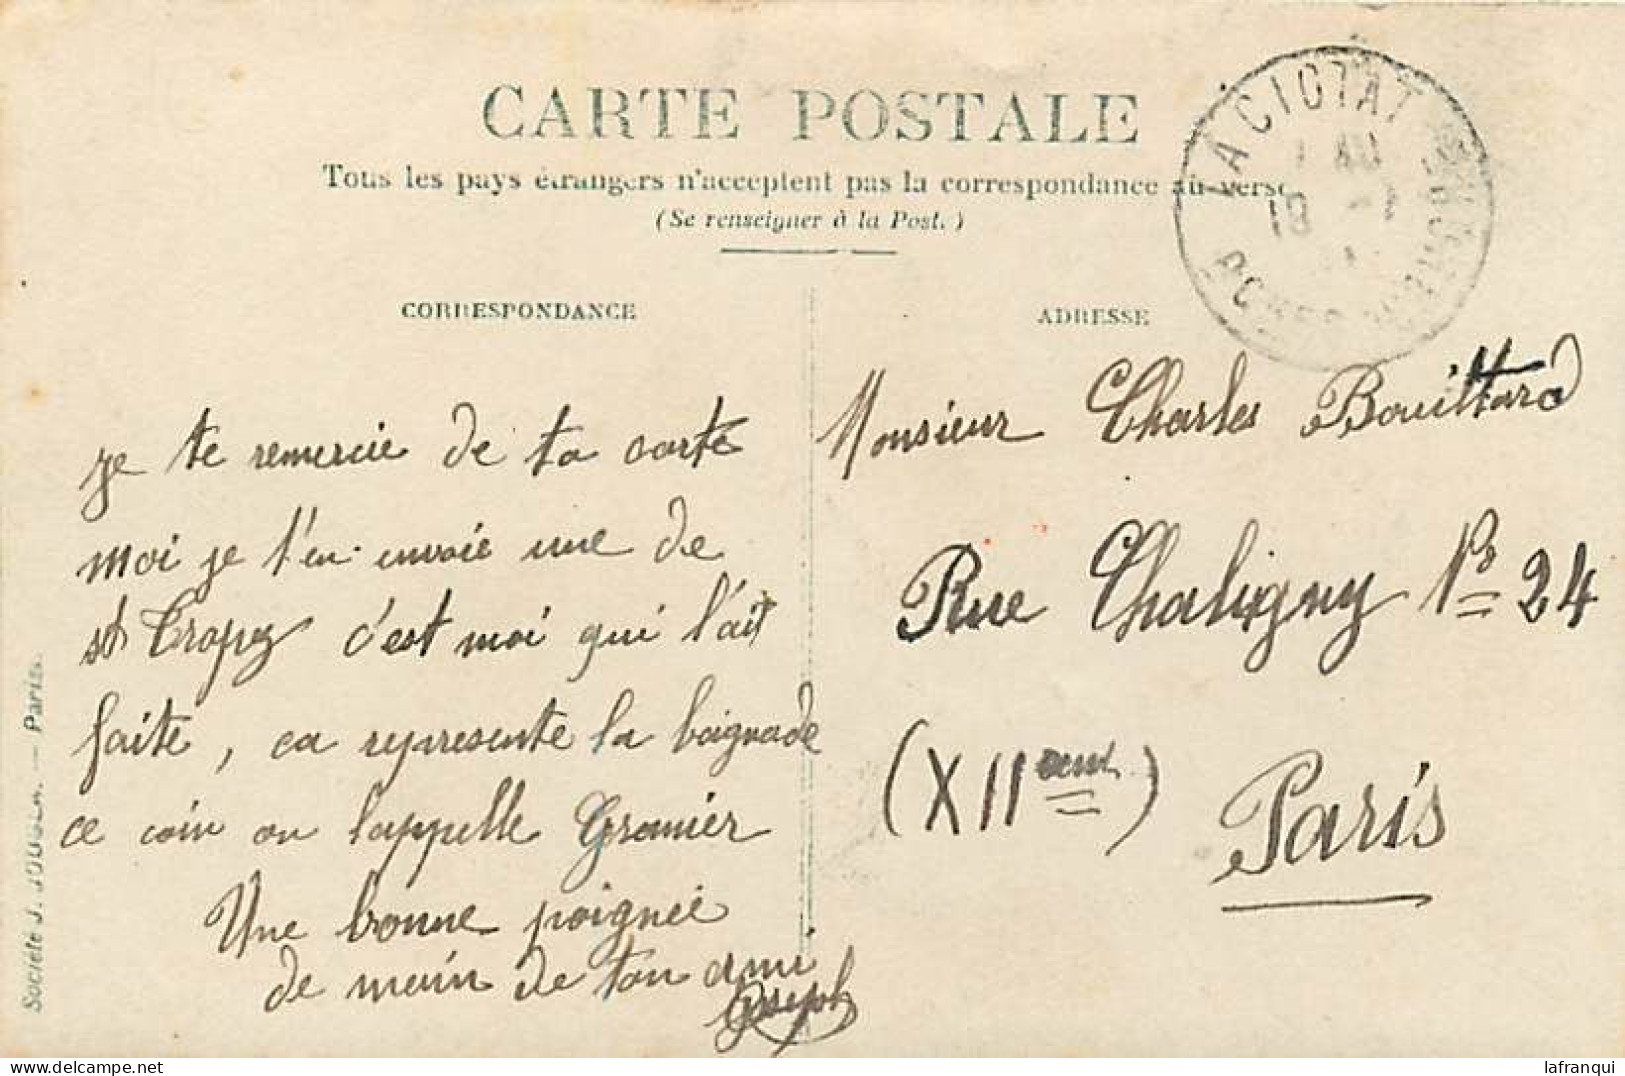 CARTE POSTALE
Tous les pays étrangers n'acceptent pas la correspondance au verso
(Se renseigner à la Post.)
CORRESPONDANCE
ADRESSE
LA CIOTAT
19 -1
je te remercie de ta carte
moi je t'en envoie une de
st Tropez c'est moi qui l'ait
faite, ca represente la baignade
ce coin on l'appelle Granier
Une bonne poignée
de main de ton ami
Joseph
Monsieur Charles Bouittard
Rue Chaligny No 24
(XIIeme)
Paris
Société J. JOUGLA. — Paris.
delcampe.net
lafranqui